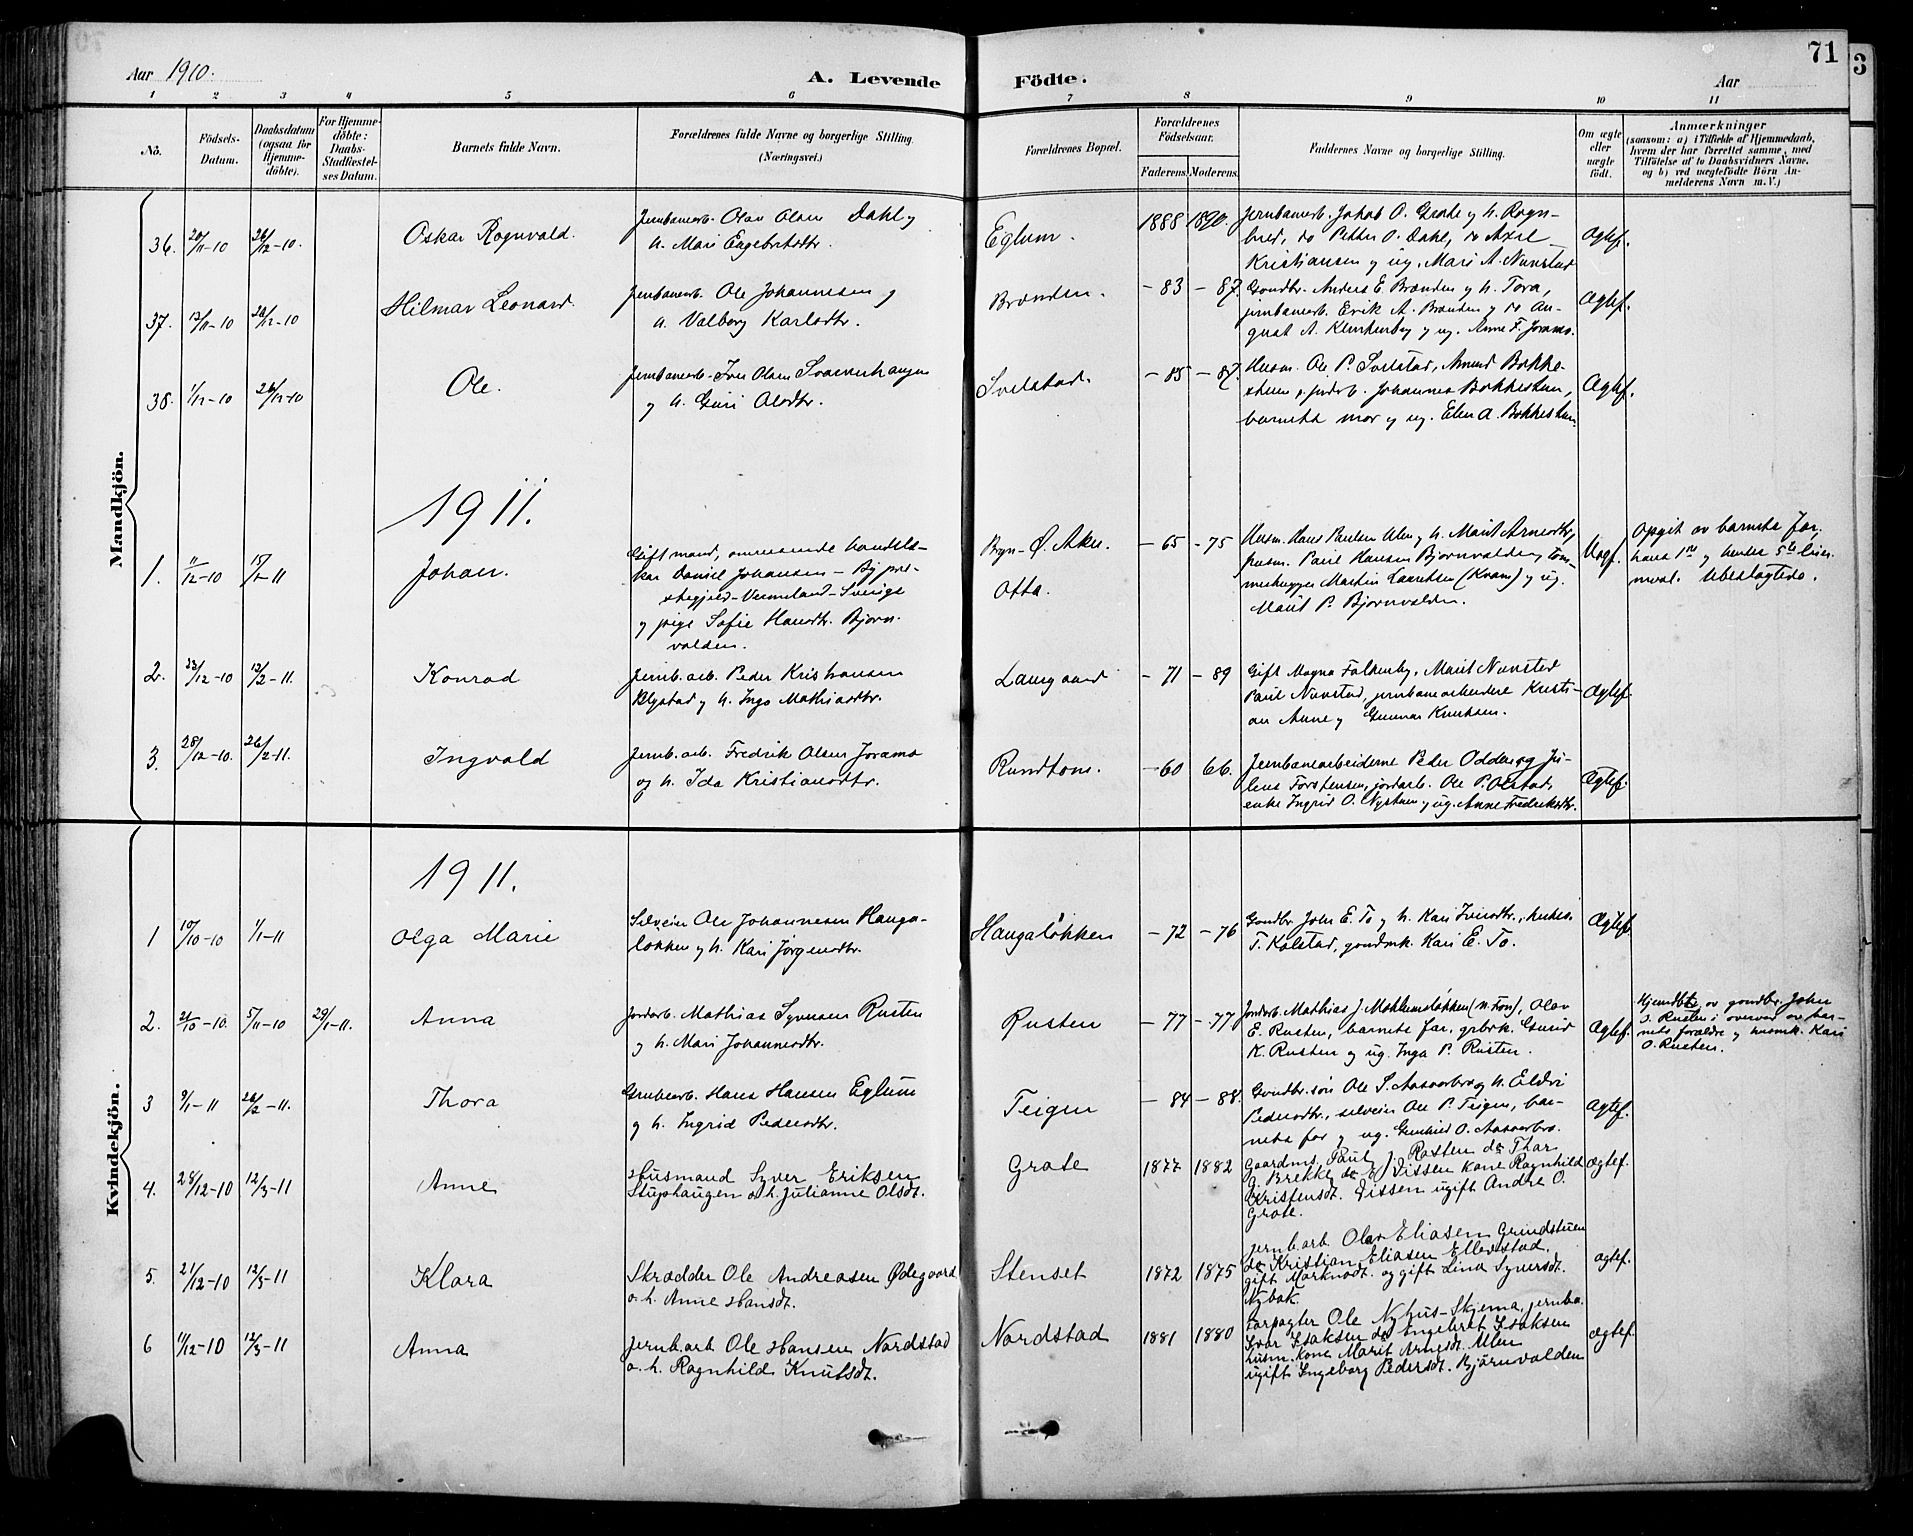 71
3
Aar 1910.
A. Levende Födte.
Aar
1 2 3 4 5 6 7 8 9 10 11
Nö.
Födsels-
Datum.
Daabsdatum
(ogsaa for
Hjemme-
döbte).
For Hjemme-
döbte:
Daabs-
Stadfæstel-
ses Datum.
Barnets fulde Navn.
Forældrenes fulde Navne og borgerlige Stilling.
(Næringsvei.)
Forældrenes Bopæl.
Forældrenes
Födselsaar.
Faderens. Moderens.
Faddernes Navne og borgerlige Stilling.
Om ægte
eller
uægte
født.
Anmærkninger
(saasom: a) i Tilfælde af Hjemmedaab,
hvem der har forrettet samme, med
Tilföielse af to Daabsvidners Navne.
og b) ved uægtefödte Börn An-
melderens Navn m. V.)
Mandkjön.
36. 20/11-10 26/12-10. Oskar Rognvald.
Jernbanearb. Olav Olsen Dahl og
h. Mari Engebretsdtr.
Eglum. 1888 1890.
Jernbanearb. Jakob O. Grote og h. Rogn-
hild, do Petter O. Dahl, do Axel
Kristiansen og ug. Mari A. Nustad
Ægtef.
37. 12/11-10 26/12-10 Hilmar Leonard.
Jernbanearb. Ole Johannesen og
h. Valborg Karlsdtr.
Brænden. -83 -87.
Gaardbr. Anders E. Brænden og h. Tora,
jernbanearb. Erik A. Brænden og do Au-
gust A. Klunkenby og ug. Anne F. Joramo.
Ægtef.
38. 1/12-10 26/12-10 Ole.
Jernbanearb. Iver Olsen
og h. Guri Olsdtr.
Svelstad. -85 -87.
Husm. Ole P. Svelstad, Amund Bakke-
Johannes
barnets mor og ug. Elen A.
Ægtef.
1911.
1. 11/12-10 15/1-11 Johan.
Gift mand, omreisende handels-
kar Daniel Johansen - By præ-
stegjeld - Vermeland - Sverige
og pige Sofie Hansdtr. Bjørn-
valden.
Bryn - Ø. Aker.
Otta.
-65 -75
Husm. Hans Paulsen Ulen og h. Marit Arnesdtr,
husm. Paul Hansen Bjørnvalden, tøm-
merhugger Martin Lauritsen (Kvam) og ug.
Marit P. Bjørnvalden.
Uegtf.
Opgit av barnets far,
hans 1ste og hendes 5te leier-
maal. Ubeslegtede.
2. 23/12-10 12/2-11. Konrad
Jernb. arb. Peder Kristiansen
Blystad og h. Inga Mathiasdtr.
Laurgaard -71 -89
Gift Magna Falkenby, Marit Nustad
Paul Nustad, jernbanearbeidere Kristi-
an Aune og Gunnar Knutsen.
Ægtef.
3. 28/12-10. 26/2-11. Ingvald
Jernb. arb. Fredrik Olsen Joramo
og h. Ida Kristiansdtr.
Rundtom. -60 66.
Jernbanearbeiderne Peder Odden og Ju-
lius Torstensen, jordarb. Ole P. Olstad,
enke Ingrid O. Nystuen, ug. Anne Fredriksdtr.
Ægtef.
Kvindekjön.
1911.
1 10/10-10 1/1-11 Olga Marie
Selveier Ole Johannesen Hauga-
løkken og h. Kari Jørgensdtr.
Haugaløkken -72 -76
Gaardbr. John E. To og h. Kari Iversdtr.,
T. Kolstad, gaardmk. Kari E. To.
Ægtef.
2. 21/10-10. 5/11-10 29/1-11. Anna
Jordarb. Mathias Syversen Rusten
og h. Mari Johannesdtr.
Rusten -77 -77
Jordarb. Mathias J. (N. Fron), Olav
E. Rusten, barnets far, grbrk. Gunid
K. Rusten og ug. Inga P. Rusten.
Ægtef.
Hjemdøbt av gaardbr. John
J. Rusten i overvær av bar-
nets forældre og husmk. Kari
O. Rusten.
3 9/1-11 26/2-11. Thora
Grubearb. Hans Hansen Eglum
og h. Ingrid Pedersdtr.
Teigen -84 -88.
Gaardbr. søn Ole S. Aasaarbro og h. Eldri
Pedersdtr., selveier Ole P. Teigen, bar-
nets far og ug. Gunhild O. Aasaarbro.
Ægtef.
4. 28/12-10 12/3-11 Anne
Husmand Syver Eriksen
Stuphaugen o.h. Julianne Olsdt.
Grote 1877 1882
Gaardms. Paul J. Rosten do Thor
G. Brekke do O. J. Dissen kone Ragnhild
Kristensdt. Dissen ugift Andre O.
Grote.
Ægtef.
5. 21/12-10 12/3-11 Klara
Skrædder Ole Andreasen Ødegaard
o.h. Anne Hansdt.
Stenset 1872 1875
Jernb.arb. Olav Eliasen Grindstuen
do Kristian Eliasen Ellevstad.
gift Marknsdt. og gift Lina Syversdt.
Nybak.
ægtef.
6 11/12-10 12/3-11 Anna
Jernb.arb Ole Hansen Nordstad
o.h. Ragnhild Knutsdt.
Nordstad 1881 1880
Forpagter Ole Nyhus-Skjena, jernba.
Ivar Isaksen do Engebret Isaksen
husm. kone Marit Arnesdt. Ulen
ugift Ingeborg Pedersdt. Bjørnvalden
Ægtef.